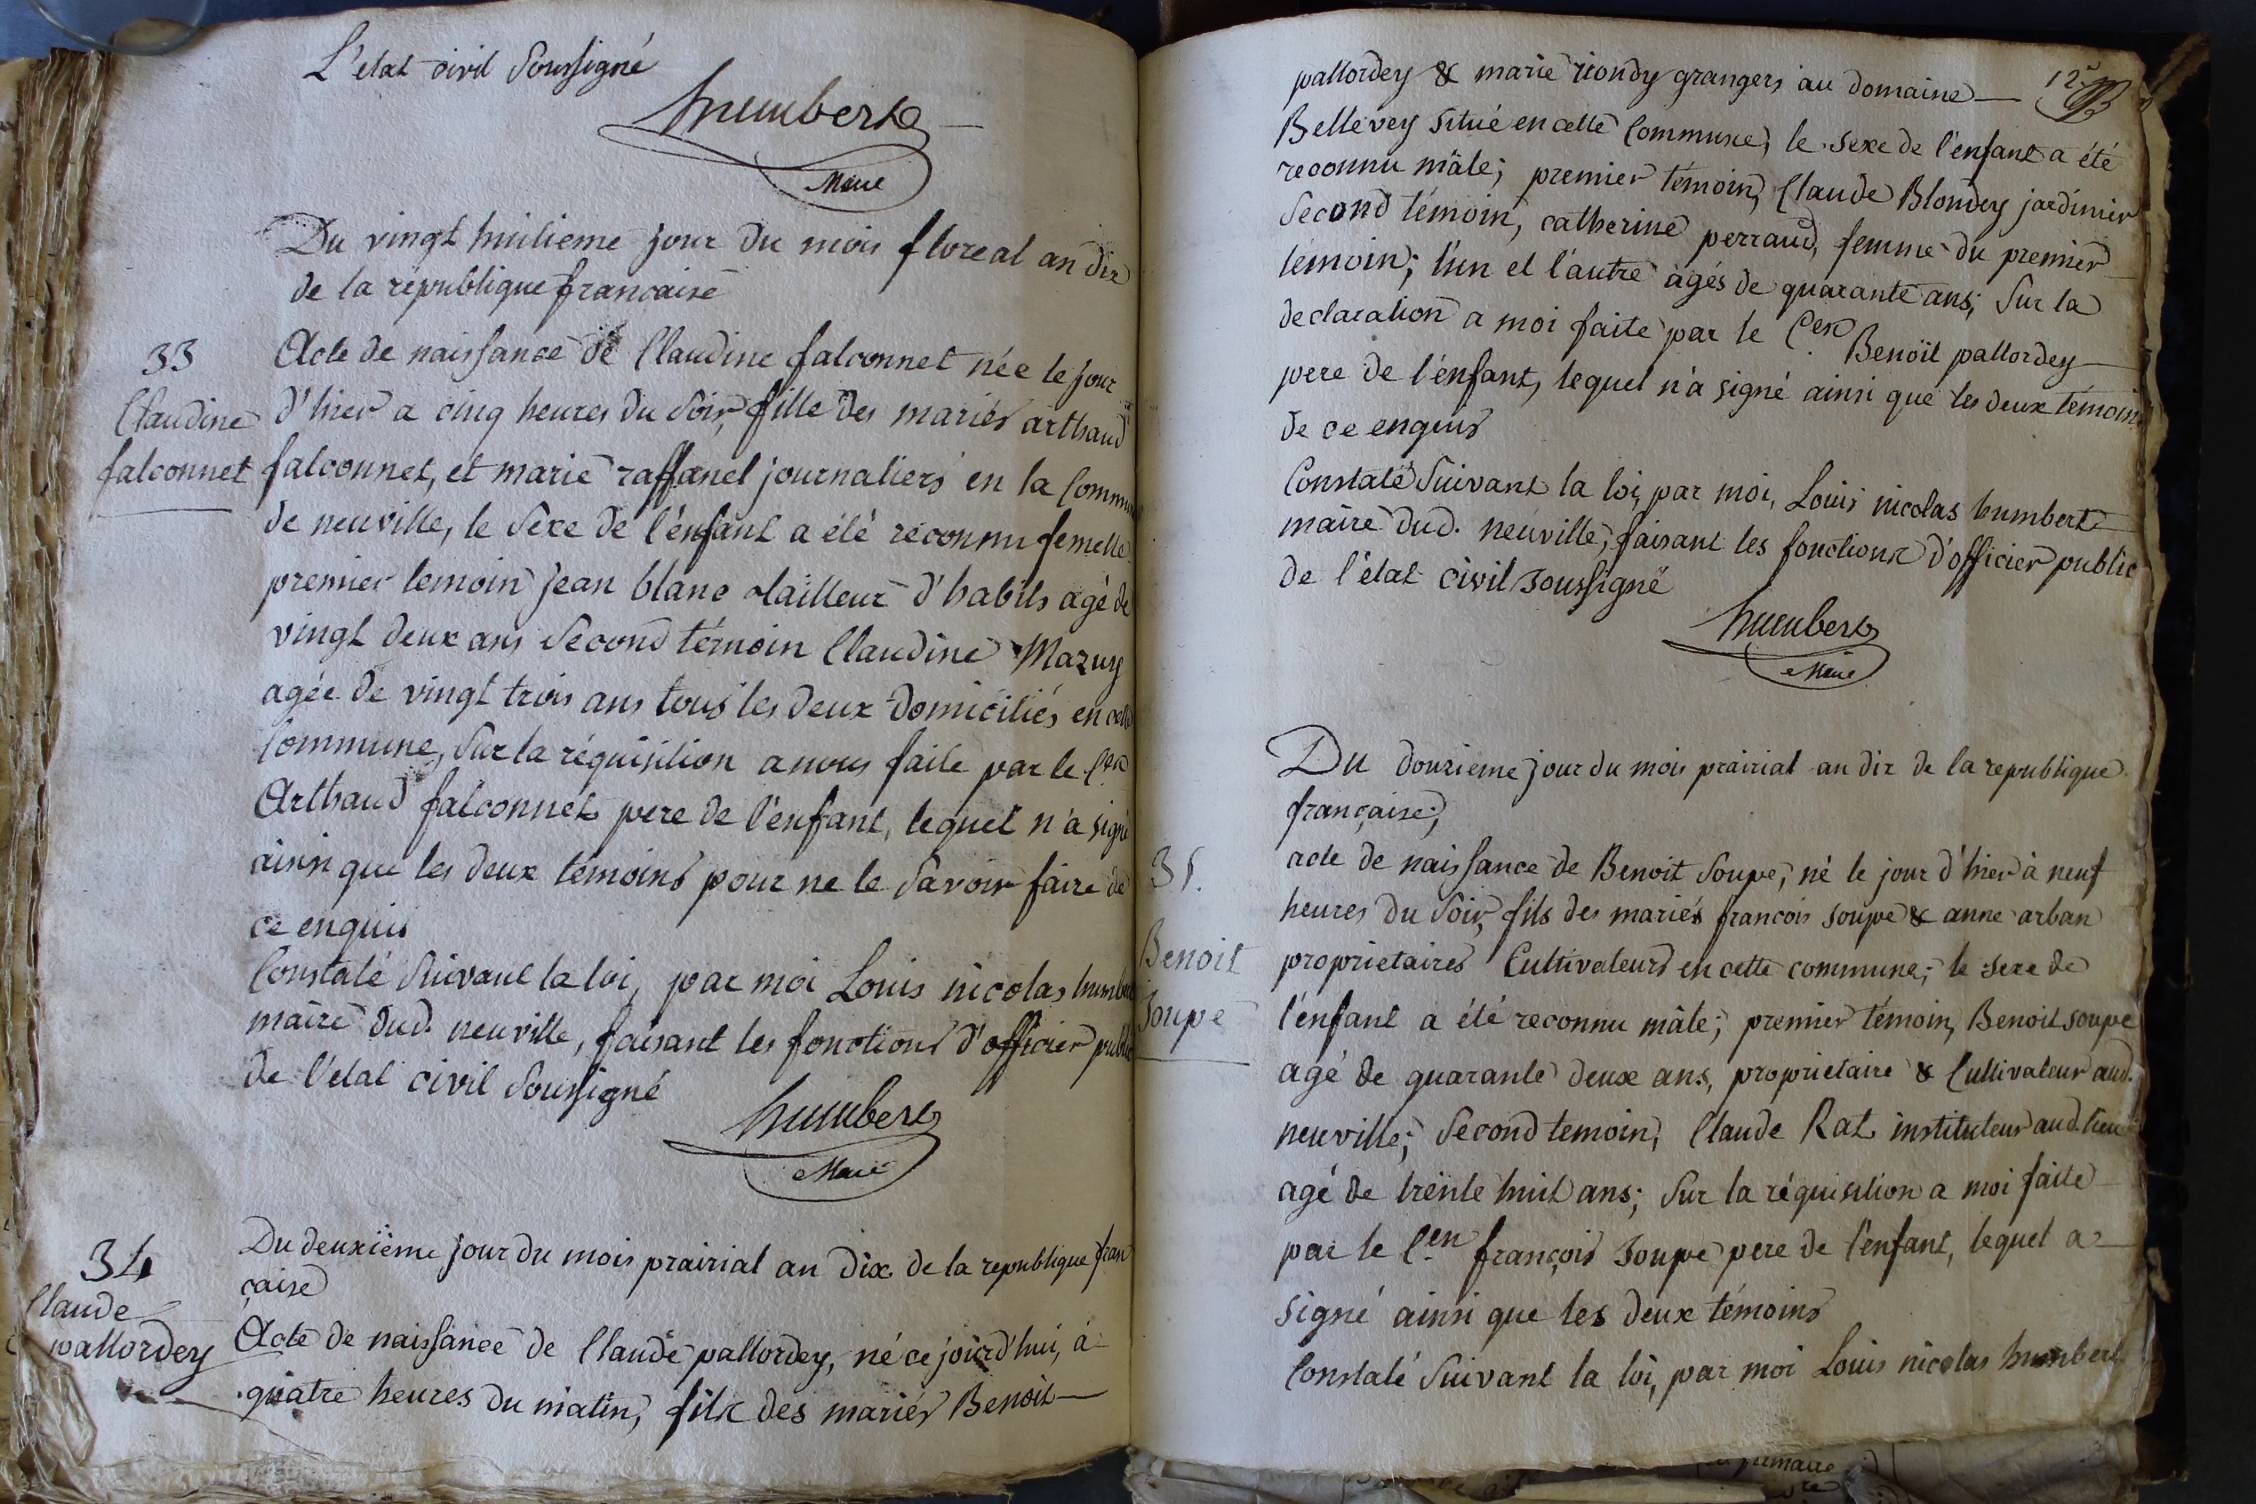 L'etat civil soussigné
humbert
Maire
Du vingt huitieme jour du mois floreal an dix
de la republique francaise
33
Claudine
falconnet
Acte de naissance de Claudine falconnet née le jour
d'hier a cinq heures du soir, fille des mariés arthaud
falconnet, et marie raffanel journaliers en la Commu
de neuville, le sexe de l'énfant a été reconnu femelle
premier temoin jean blanc tailleur d'habits agé de
vingt deux ans second témoin Claudine Mazuy
agée de vingt trois ans tous les deux domiciliés en cette
Commune, sur la réquisition a nous faite par le Cen
Arthaud falconnet pere de l'enfant, lequel n'a signé
ainsi que les deux témoins pour ne le savoir faire de
ce enquis
Constaté suivant la loi, par moi Louis nicolas humbe
maire dud. neuville, faisant les fonctions d'officier public
de l'état civil soussigné
humbert
Maire
34
Claude
pallordey
Du deuxiëme jour du mois prairial an dix de la republique fran
çaise
Acte de naissance de Claude pallordey, né ce jourd'hui, à
quatre heures du matin, fils des mariés Benoit
12e
pallordey & marie riondy grangers au domaine
Bellevey situé en cette Commune, le sexe de l'enfant a été
reconnu mâle; premier témoin, Claude Blondey jardinier
second témoin, catherine perraud, femme du premier
témoin; l'un et l'autre agés de quarante ans; sur la
declaration a moi faite par le Cen Benoit pallordey
pere de l'énfant, lequel n'a signé ainsi que les deux témoins
de ce enquis
Constaté suivant la loi, par moi, Louis nicolas humbert
maire dud. neuville, faisant les fonctions d'officier public
de l'état civil soussigné
humbert
Maire
Du douzieme jour du mois prairial an dix de la republique
française,
35.
Benoit
soupe
acte de naissance de Benoit soupe, né le jour d'hier à neuf
heures du soir, fils des mariés francois soupe & anne arban
proprietaires Cultivateurs en cette commune; le sexe de
l'énfant a été reconnu mâle; premier témoin, Benoit soupe
agé de quarante deux ans, proprietaire & Cultivateur aud.
neuville; second temoin, Claude Rat instituteur aud. lieu
agé de trente huit ans; sur la réquisition a moi faite
par le Cen françois soupe pere de l'énfant, lequel a
signé ainsi que les deux témoins
Constaté suivant la loi, par moi Louis nicolas humbert